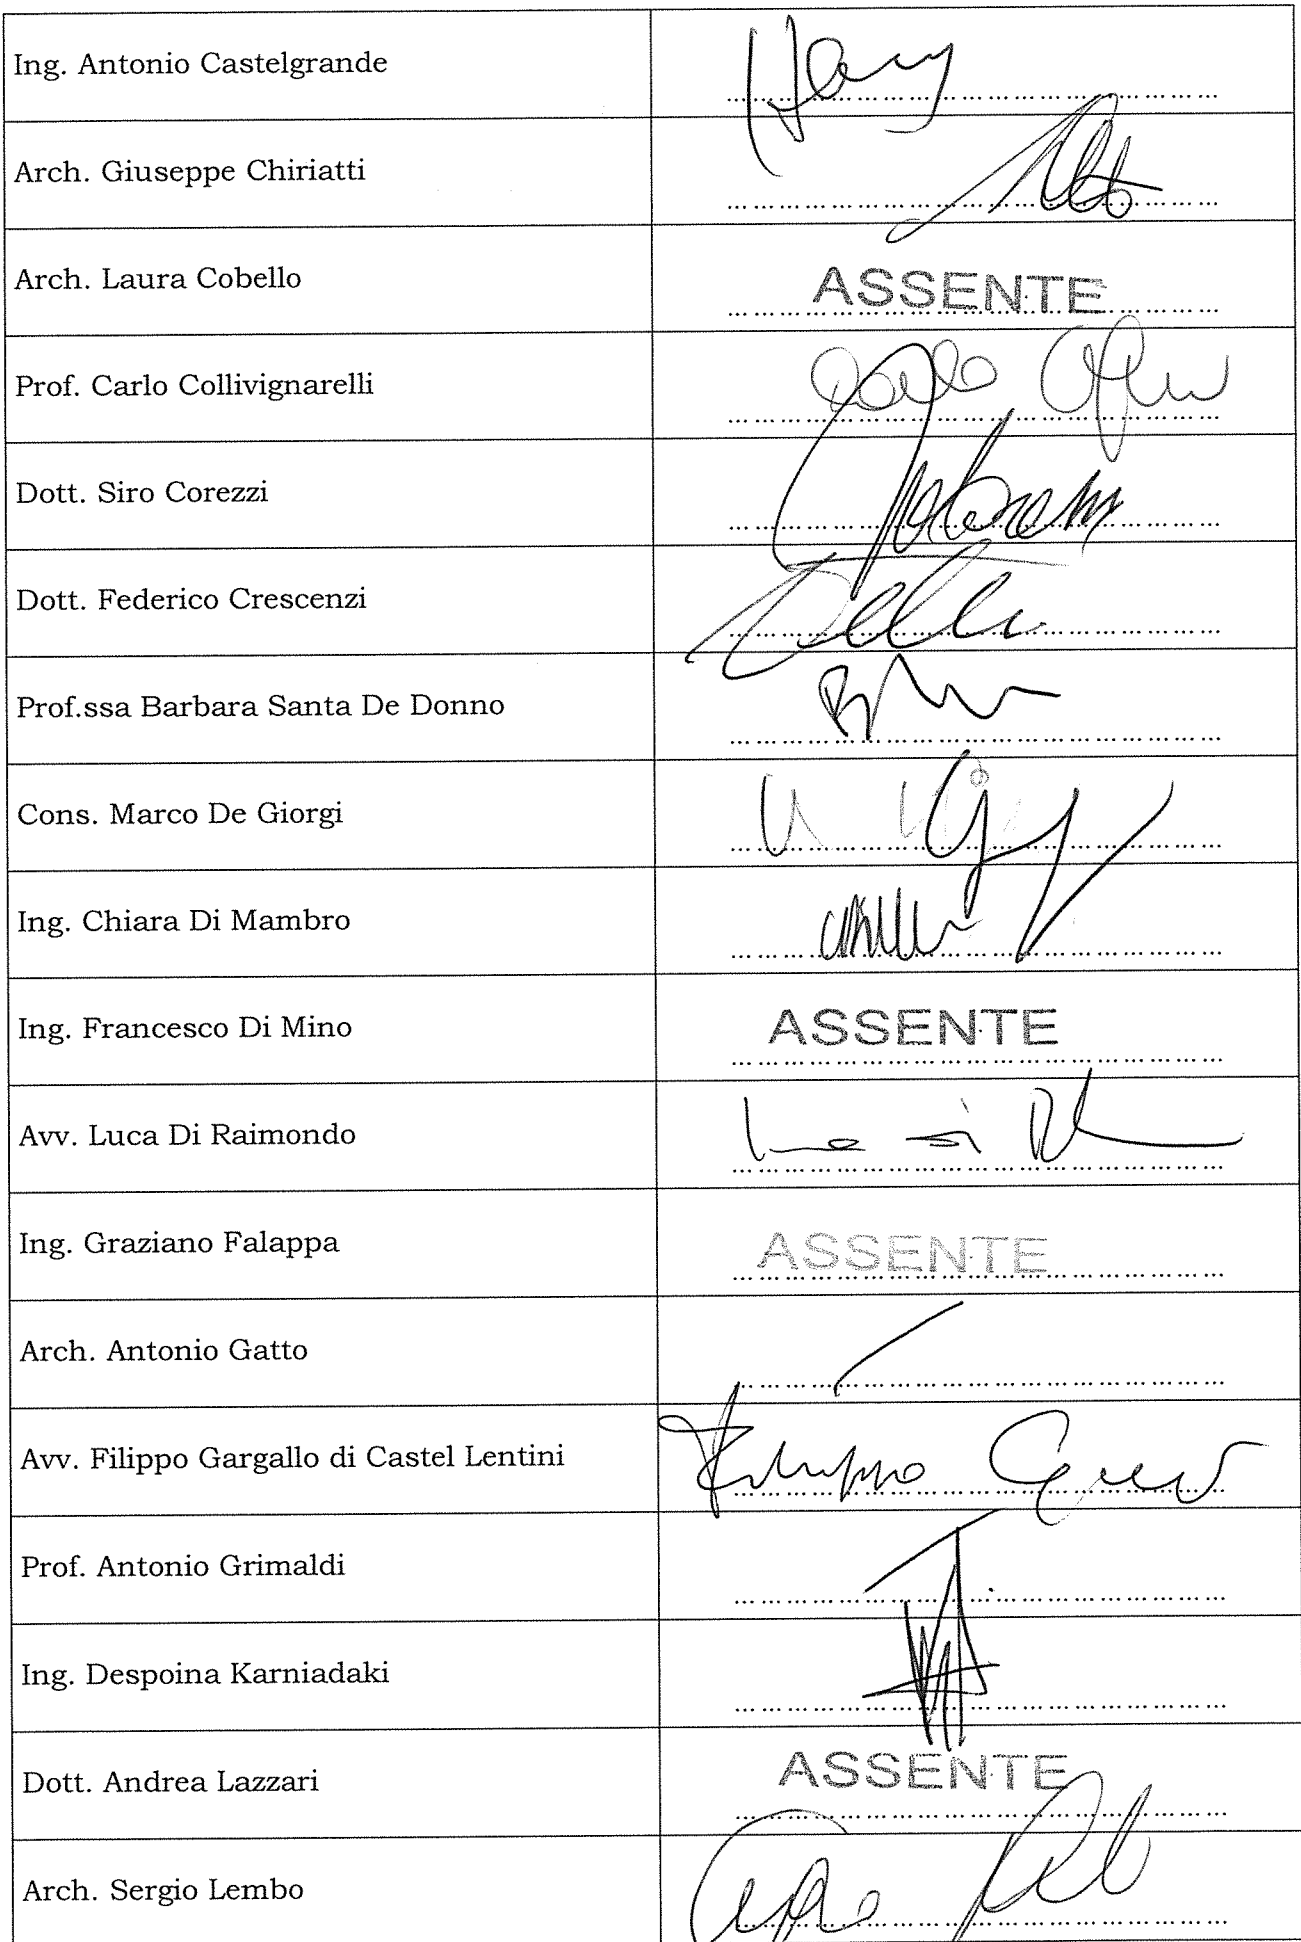 Ing. Antonio Castelgrande
Arch. Giuseppe Chiriatti
Arch. Laura Cobello ASSENTE
Prof. Carlo Collivignarelli
Dott. Siro Corezzi
Dott. Federico Crescenzi
Prof.ssa Barbara Santa De Donno
Cons. Marco De Giorgi
Ing. Chiara Di Mambro
Ing. Francesco Di Mino ASSENTE
Avv. Luca Di Raimondo
Ing. Graziano Falappa ASSENTE
Arch. Antonio Gatto
Avv. Filippo Gargallo di Castel Lentini
Prof. Antonio Grimaldi
Ing. Despoina Karniadaki
Dott. Andrea Lazzari ASSENTE
Arch. Sergio Lembo